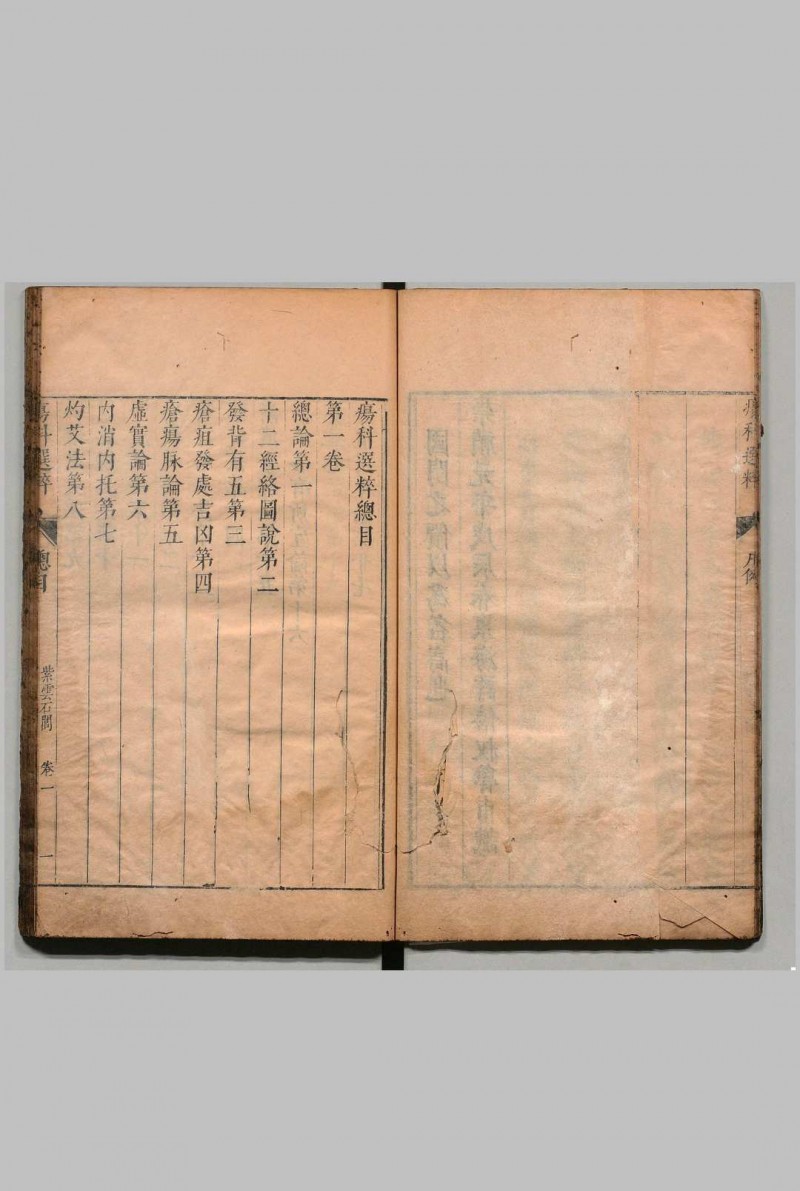 瘍科選粹
凡例
瘍科選粹總目
第一卷
總論第一
十二經絡圖說第二
發背有五第三
瘡疽發處吉凶第四
瘡瘍脉論第五
虛實論第六
內消內托第七
灼艾法第八
瘍科選粹
總目
紫雲石閣
卷一
一